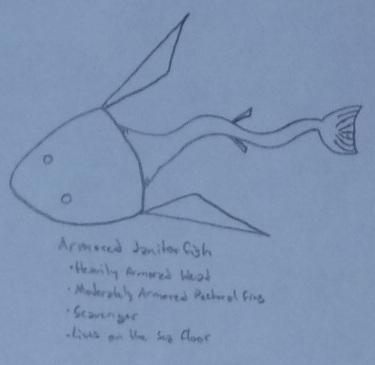 Armored Janitor fish
• Heavily Armored Head
• Moderately Armored Pectoral Fins
• Scavenger
• Lives on the Sea Floor